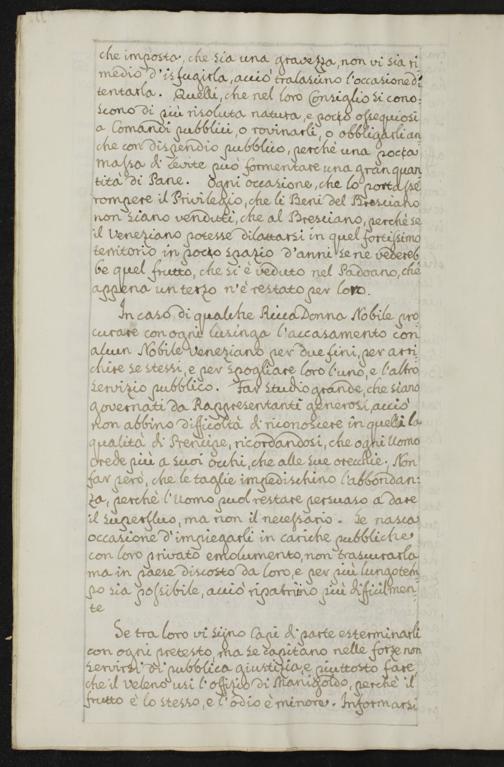 che imposta, che sia una gravezza, non vi sia ri
medio d'isfugirla, acciò tralascino l'occasione di
tentarla. Quelli, che nel loro Consiglio si cono:
scono di più risoluta natura, e poco ossequiosi
a Comandi pubblici, o rovinarli, o obbligarli an
che con dispendio pubblico, perchè una poca
massa di Levite può formentare una gran quan
tità di Pane. Ogni occasione, che lo portasse
rompere il Privilegio, che li Beni del Bresciano
non siano venduti, che al Bresciano, perchè se
il Veneziano potesse dilattarsi in quel fortissimo
territorio in poco spazio d'anni se ne vedereb
be quel frutto, che si è veduto nel Padoano, che
appena un terzo n'è restato per loro.
In caso di qualche Ricca Donna Nobile pro
curare con ogni lusinga l'accasamento con
alcun Nobile Veneziano per due fini, per arri:
chire se stessi, e per spogliare loro l'uno, e l'altro
servizio pubblico. Far studio grande, che siano
governati da Rappresentanti generosi, acciò
non abbino difficoltà di riconoscere in quelli la
qualità di Prencipe, ricordandosi, che ogni Uomo
crede più a suoi occhi, che alle sue orecchie. Non
far però, che le taglie impedischino l'abbondan:
za, perchè l'Uomo può restare persuaso a dare
il superfluo, ma non il necessario. Se nasca
occasione d'impiegarli in cariche pubbliche
con loro privato emolumento, non trascurarla
ma in paese discosto da loro, e per più lungo tem
po sia possibile, acciò ripatrino più difficilmen
te
Se tra loro vi sijno Capi di parte esterminarli
con ogni pretesto, ma se capitano nelle forze non
servirsi di pubblica giustizia, e piuttosto fare,
che il Veleno usi l'offizio di Manigoldo, perchè il
frutto è lo stesso, e l'odio è minore. Informarsi